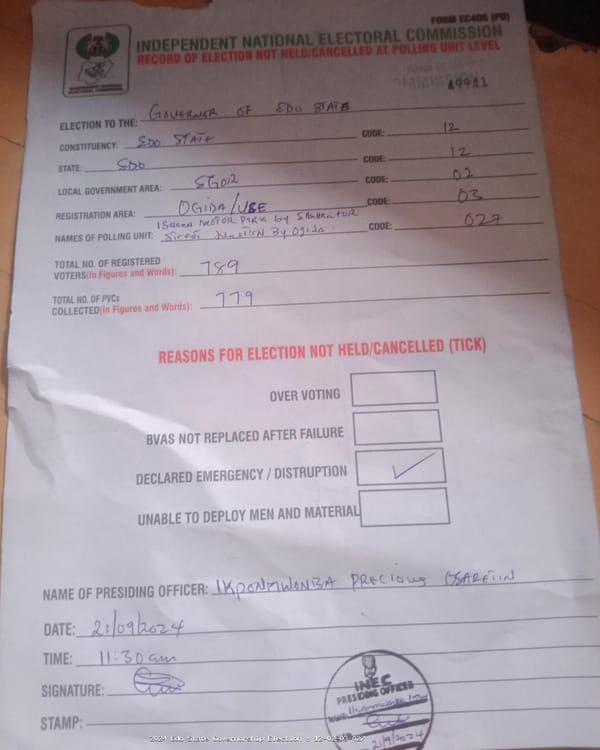 FORM EC40G (PU)
INDEPENDENT NATIONAL ELECTORAL COMMISSION
RECORD OF ELECTION NOT HELD/CANCELLED AT POLLING UNIT LEVEL
49941
ELECTION TO THE: GOVERNOR OF EDO STATE
CONSTITUENCY: EDO STATE CODE: 12
STATE: EDO CODE: 12
LOCAL GOVERNMENT AREA: EGOR CODE: 02
REGISTRATION AREA: OGIDA/USE CODE: 03
NAMES OF POLLING UNIT: MOTOR PARK by Street Junction By Ogida CODE: 027
TOTAL NO. OF REGISTERED
VOTERS(In Figures and Words): 789
TOTAL NO. OF PVCs
COLLECTED(In Figures and Words): 779
REASONS FOR ELECTION NOT HELD/CANCELLED (TICK)
OVER VOTING
BVAS NOT REPLACED AFTER FAILURE
DECLARED EMERGENCY / DISTRUPTION ✓
UNABLE TO DEPLOY MEN AND MATERIAL
NAME OF PRESIDING OFFICER: IKPONMWONBA PRECIOUS OSARETIN
DATE: 21/09/2024
TIME: 11:30am
SIGNATURE:
STAMP:
INEC
PRESIDING OFFICER
21/9/2024
2024 Edo State Governorship Election - 12-02-03-027